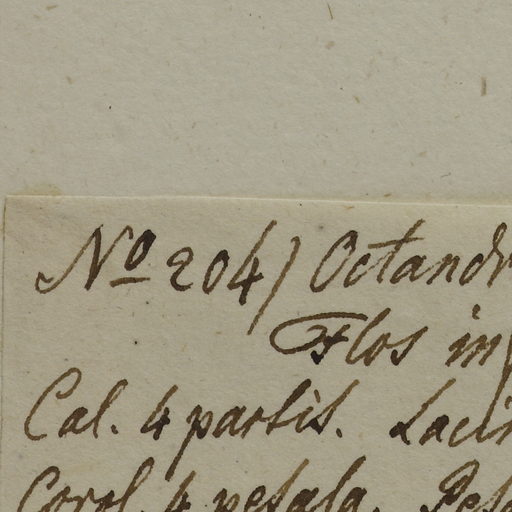 No 204) Octandr
Flos in
Cal. 4 partit. Lacin
Corol. 4 petala. Peta